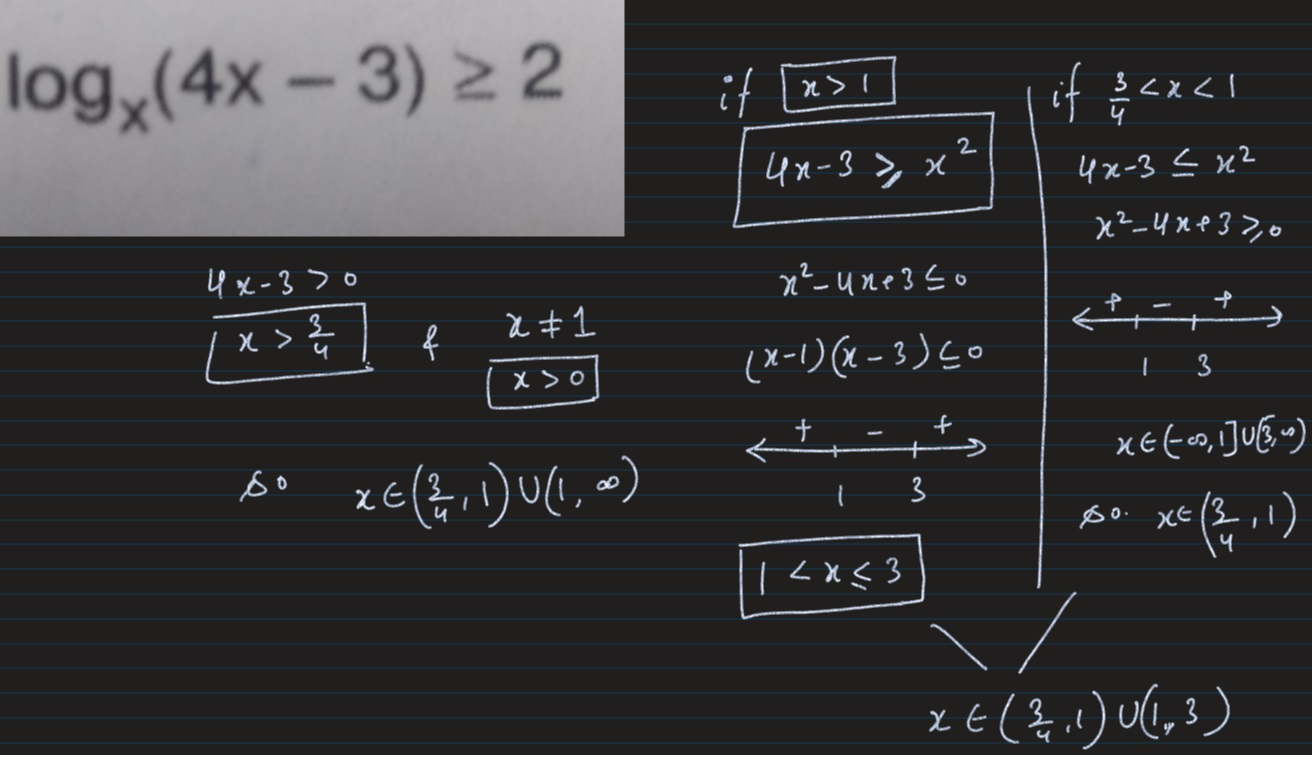 logₓ(4x − 3) ≥ 2
4x-3 > 0
x > 3/4 & x ≠ 1
x > 0
so x ∈ (3/4, 1) ∪ (1, ∞)
if x > 1
4x-3 ≥ x²
x²-4x+3 ≤ 0
(x-1)(x-3) ≤ 0
+ - +
1 3
1 < x ≤ 3
if 3/4 < x < 1
4x-3 ≤ x²
x²-4x+3 ≥ 0
+ - +
1 3
x ∈ (-∞, 1] ∪ [3, ∞)
so. x ∈ (3/4, 1)
x ∈ (3/4, 1) ∪ (1, 3)